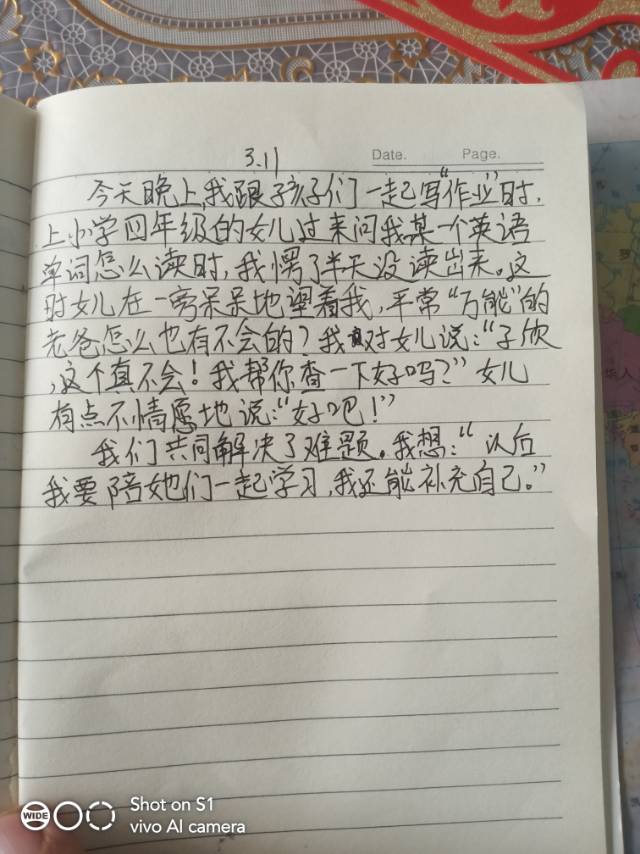 3.11
Date.
Page.
今天晚上,我跟孩子们一起写“作业”时,
上小学四年级的女儿过来问我某一个英语
单词怎么读时,我愣了半天没读出来。这
时女儿在一旁呆呆地望着我,平常“万能”的
老爸怎么也有不会的?我对女儿说:“子欣
,这个真不会!我帮你查一下好吗?”女儿
有点不情愿地说:“好吧!”
我们共同解决了难题。我想:“以后
我要陪她们一起学习,我还能补充自己。”
WIDE
Shot on S1
vivo AI camera